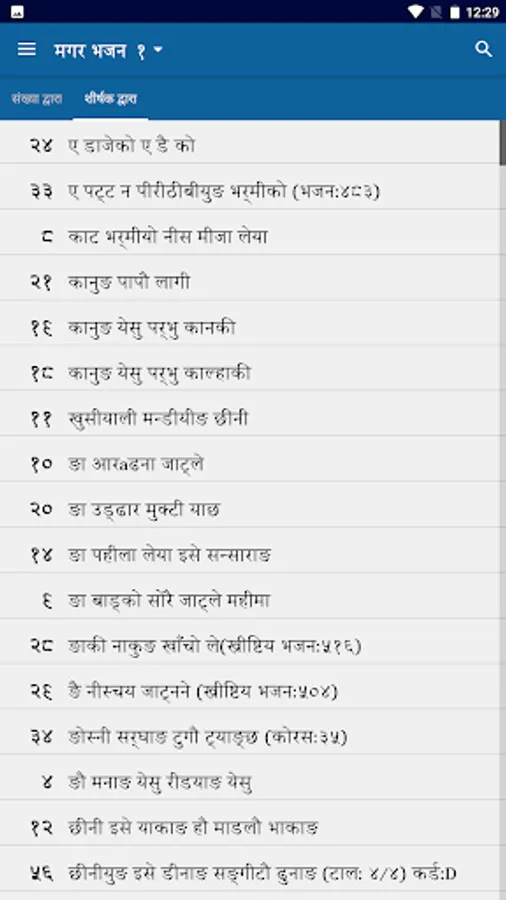 12:29
मगर भजन १
संख्या द्वारा शीर्षक द्वारा
२४ ए डाजेको ए डै को
३३ ए पट्ट न पीरीठीबीयुङ भर्‌मीको (भजन:४८३)
८ काट भर्‌मीयो नीस मीजा लेया
२१ कानुङ पापौ लागी
१६ कानुङ येसु पर्‌भु कानकी
१८ कानुङ येसु पर्‌भु काल्हाकी
११ खुसीयाली मन्डीयीङ छीनी
१० ङा आरaढना जाट्ले
२० ङा उड्ढार मुक्टी याछ
१४ ङा पहीला लेया इसे सन्साराङ
६ ङा बाड्को सोँरै जाट्ले महीमा
२८ ङाकी नाकुङ खाँचो ले(ख्रीष्टिय भजन:५१६)
२६ ङै नीस्चय जाट्नने (ख्रीष्टिय भजन:५०४)
३४ ङोस्नी सर्‌घाङ टुगौ ट्याङ्छ (कोरस:३५)
४ ङौ मनाङ येसु रीडयाङ येसु
१२ छीनी इसे याकाङ हौ माडलौ भाकाङ
५६ छीनीयुङ इसे डीनाङ सङ्गीटौ ढुनाङ (टाल: ४/४) कर्ड:D